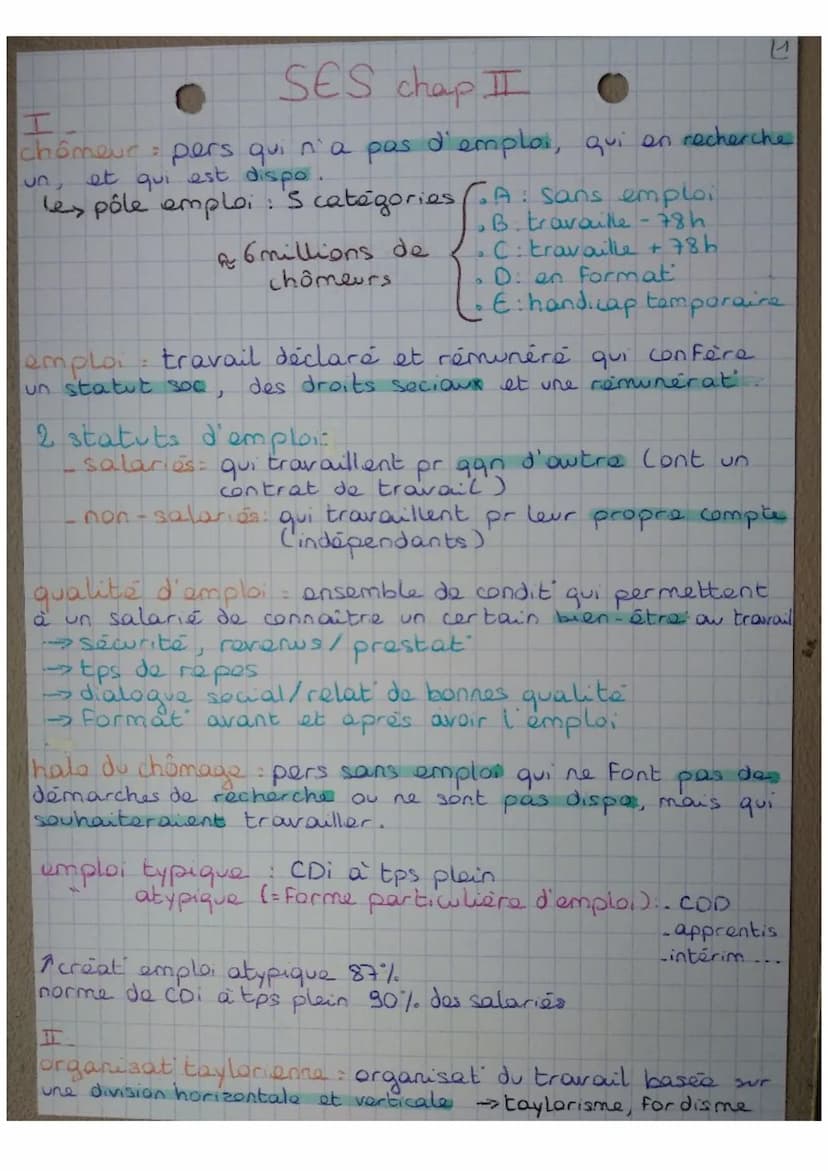 1
SES chap II
I_
chômeur : pers qui n'a pas d'emploi, qui en recherche
un, et qui est dispo.
↳ pôle emploi : 5 catégories
≈ 6 millions de
chômeurs
. A : sans emploi
. B : travaille - 78h
. C : travaille + 78h
. D : en format°
. E : handicap temporaire
emploi : travail déclaré et rémunéré qui confère
un statut soc, des droits sociaux et une rémunérat°.
2 statuts d'emploi:
- salariés = qui travaillent pr qqn d'autre (ont un
contrat de travail)
- non-salariés: qui travaillent pr leur propre compte
(indépendants)
qualité d'emploi = ensemble de condit° qui permettent
à un salarié de connaître un certain bien-être au travail
→ sécurité, revenus / prestat°
→ tps de repos
→ dialogue social/relat° de bonnes qualité
→ Format° avant et après avoir l'emploi
halo du chômage : pers sans emploi qui ne font pas des
démarches de recherche ou ne sont pas dispo, mais qui
souhaiteraient travailler.
emploi typique : CDi à tps plein
" atypique (= Forme particulière d'emploi) : - CDD
- apprentis
- intérim ...
↑ créat° emploi atypique 87%
norme de CDi à tps plein 90% des salariés
II_
organisat° taylorienne : organisat° du travail basée sur
une division horizontale et verticale → taylorisme, Fordisme